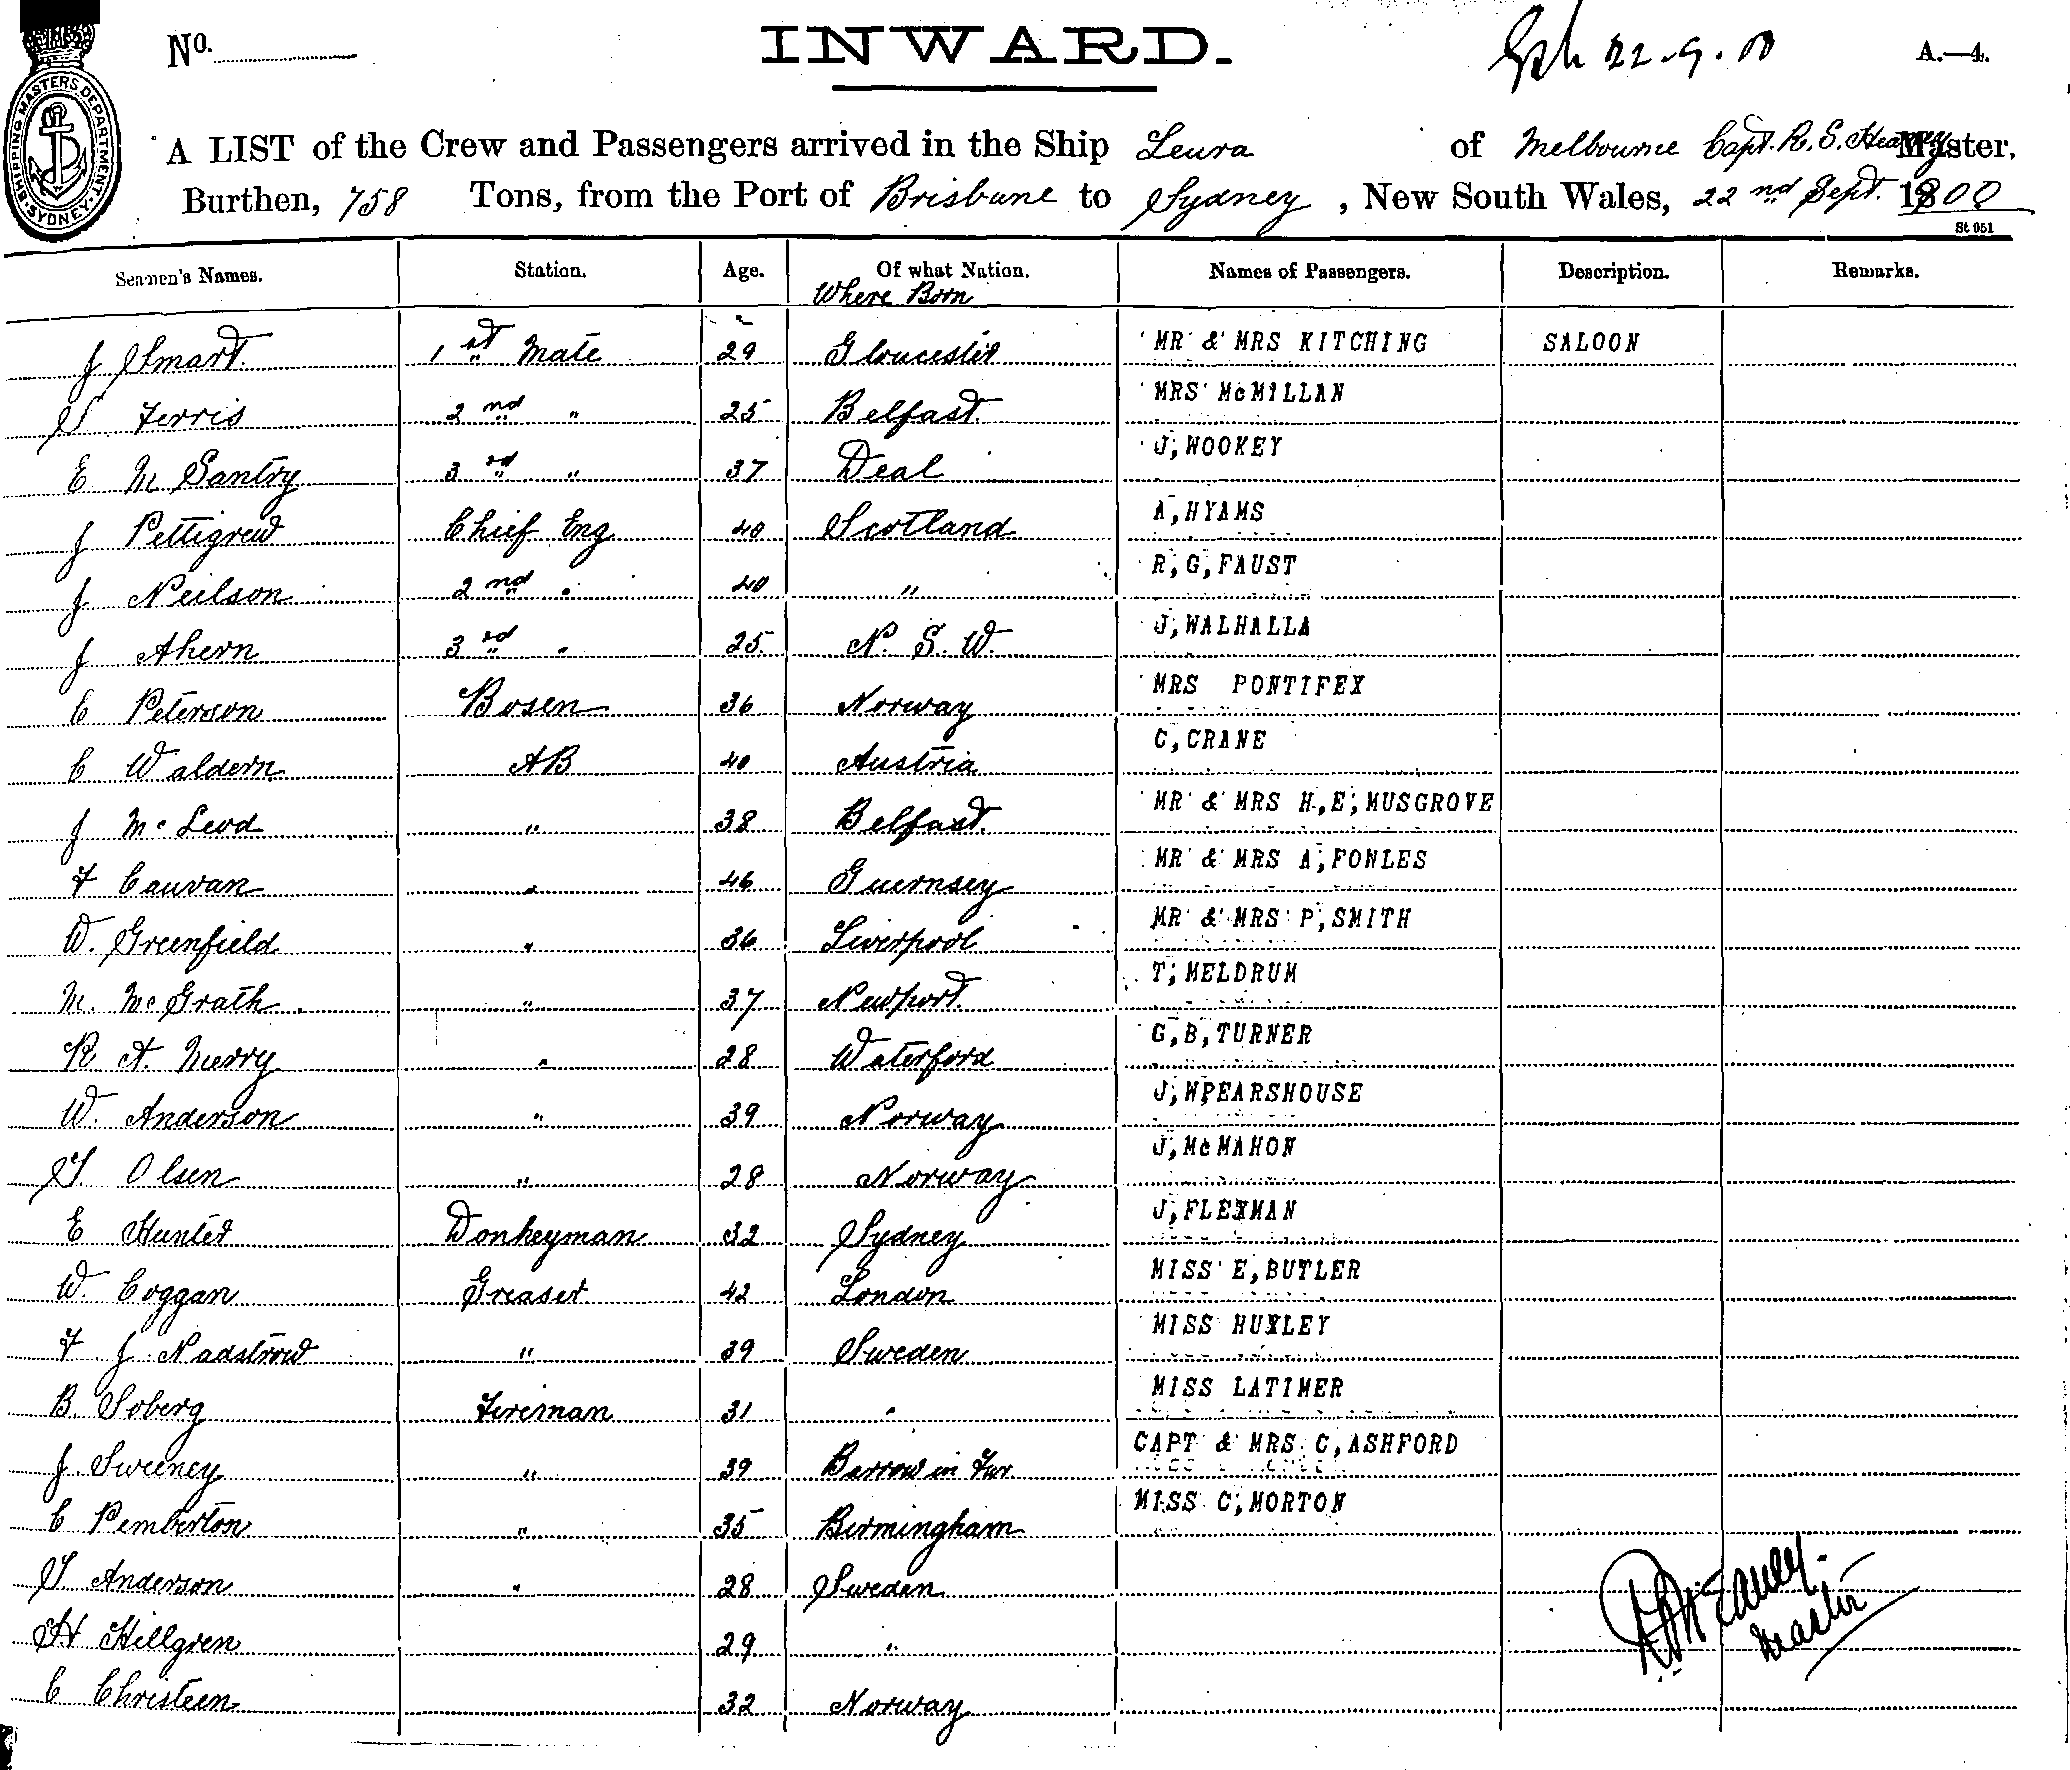 No.
INWARD.
22.9.00
A.—4.
SHIPPING MASTERS DEPARTMENT SYDNEY
A LIST of the Crew and Passengers arrived in the Ship Leura of Melbourne Capt. R. S. Master,
Burthen, 758 Tons, from the Port of Brisbane to Sydney, New South Wales, 22nd Sept. 1900
St 051
Seamen's Names. Station. Age. Of what Nation. Names of Passengers. Description. Remarks.
Where Born
J Smart. 1st Mate 29 Gloucester MR & MRS KITCHING SALOON
S Ferris 2nd " 25 Belfast. MRS McMILLAN
E M Santry 3rd " 37 Deal J,HOOKEY
J Pettigrew Chief Eng 40 Scotland A,HYAMS
J Neilson 2nd " 40 " R,G,FAUST
J Ahern 3rd " 25 N. S. W. J,WALHALLA
C Peterson Bosen 36 Norway MRS PONTIFEX
C Waldern AB 40 Austria C,CRANE
J McLeod " 38 Belfast. MR & MRS H,E,MUSGROVE
F Cauvan " 46 Guernsey MR & MRS A,FOWLES
W. Greenfield " 36 Liverpool MR & MRS P,SMITH
M. McGrath " 37 Newport. T,MELDRUM
R A. Merry " 28 Waterford G,B,TURNER
W. Anderson " 39 Norway J,WPEARSHOUSE
S. Olsen " 28 Norway J,McMAHON
E Hunter Donkeyman 32 Sydney J,FLEXMAN
W. Coggan Greaser 42 London MISS E,BUTLER
F J Nadstrow " 39 Sweden MISS HUXLEY
B. Soberg Fireman 31 " MISS LATIMER
J. Sweeney " 39 Barrow in Fur. CAPT & MRS C,ASHFORD
C Pemberton " 35 Birmingham MISS C,MORTON
S Anderson " 28 Sweden
H Hillgren 29 "
C Christeen 32 Norway
Master